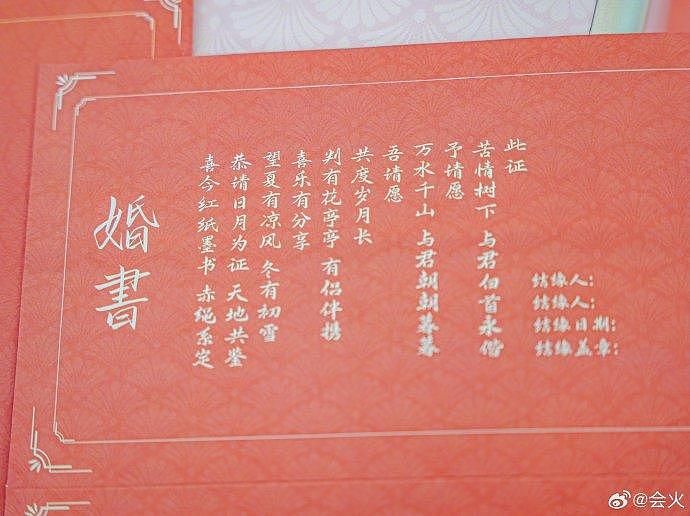 婚書
喜今红纸墨书 赤绳系定
恭请日月为证 天地共鉴
望夏有凉风 冬有初雪
喜乐有分享
判有花亭亭 有侣伴携
共度岁月长
吾请愿
万水千山 与君朝朝暮暮
予请愿
苦情树下 与君佰首永偕
此证
结缘人:
结缘人:
结缘日期:
结缘盖章:
@会火